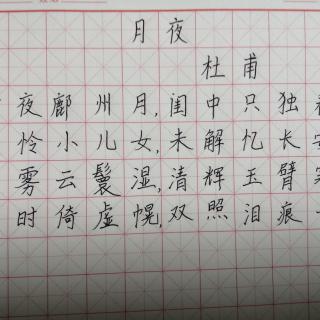 月夜
杜甫
夜鄜州月,闺中只独
怜小儿女,未解忆长
雾云鬟湿,清辉玉臂
时倚虚幌,双照泪痕